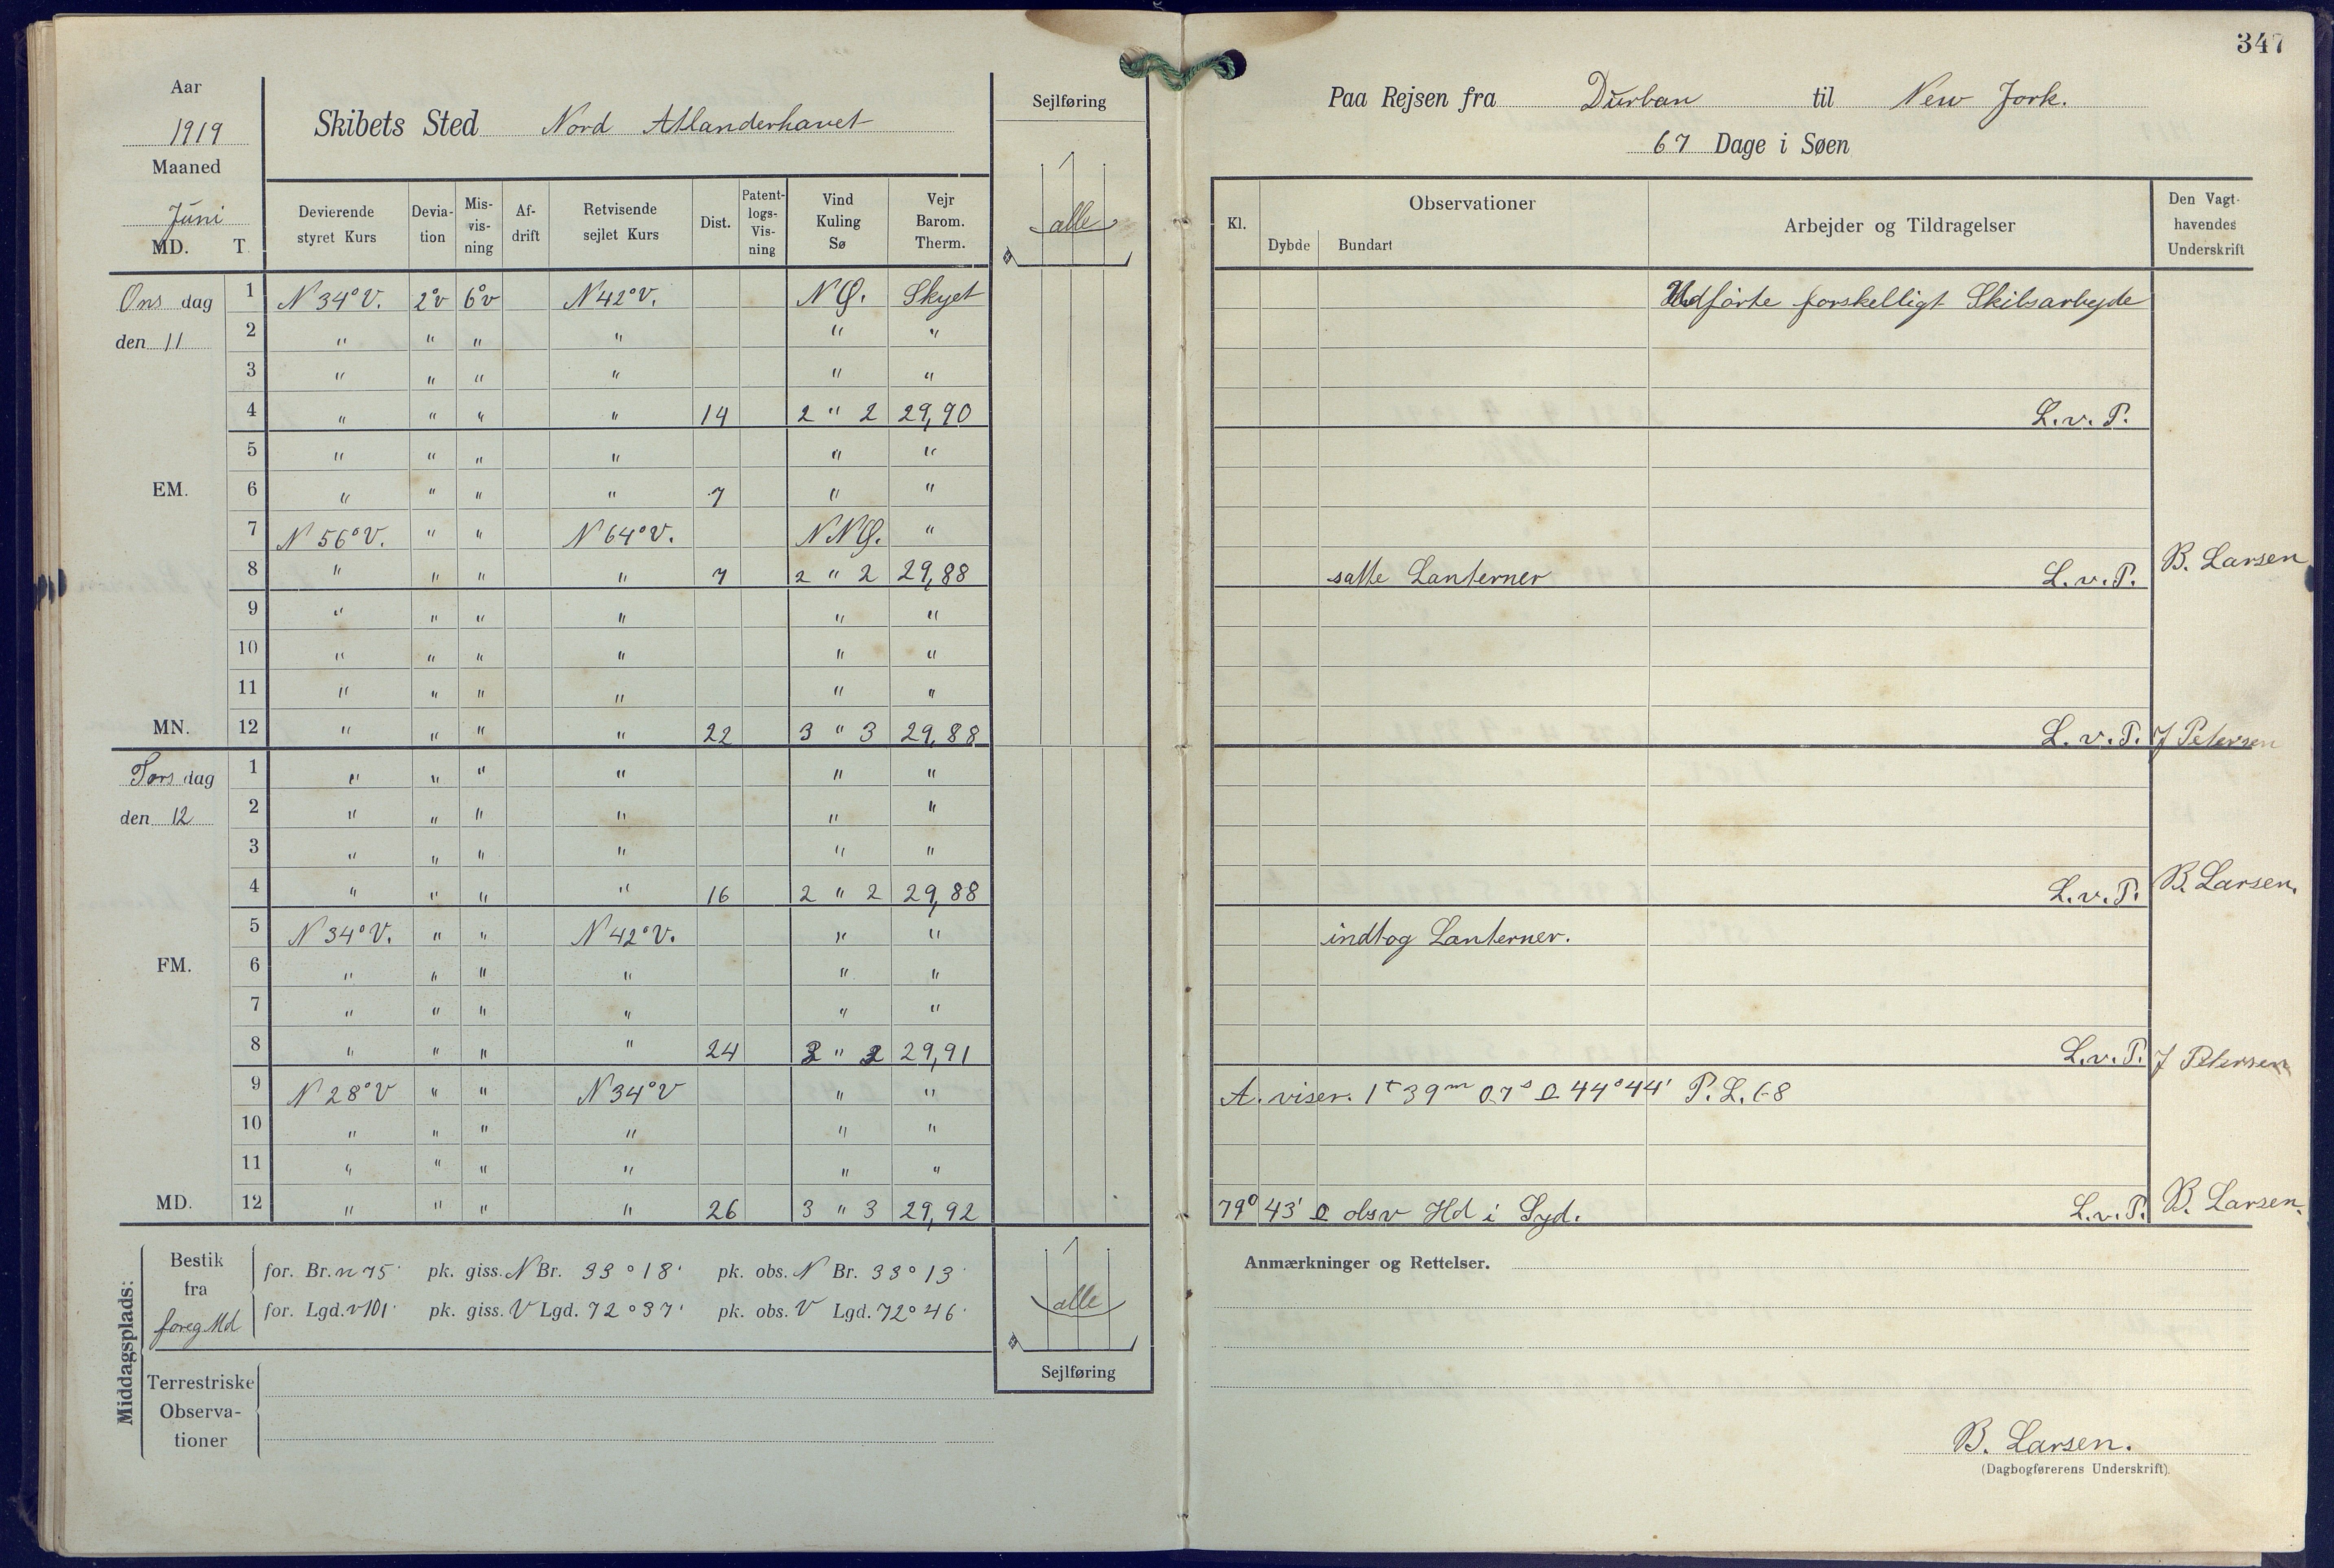 Aar
1919
Maaned
Juni
MD. T.
Skibets Sted Nord Atlanderhavet
Devierende styret Kurs | Devia-tion | Mis-vis-ning | Af-drift | Retvisende sejlet Kurs | Dist. | Patent-logs-Vis-ning | Vind Kuling Sø | Vejr Barom. Therm.
Sejlføring
alle
Ons dag 1 N 34° V. 2°v 6°v N 42° V. N Ø. Skyet
den 11 2 " " " " " "
3 " " " " " "
4 " " " " 14 2 " 2 29,90
5 " " " " " "
EM. 6 " " " " 7 " "
7 N 56° V. " " N 64° V. N N Ø. "
8 " " " " 7 2 " 2 29,88
9 " " " " " "
10 " " " " " "
11 " " " " " "
MN. 12 " " " " 22 3 " 3 29,88
Tors dag 1 " " " " " "
den 12 2 " " " " " "
3 " " " " " "
4 " " " " 16 2 " 2 29,88
5 N 34° V. " " N 42° V. " "
FM. 6 " " " " " "
7 " " " " " "
8 " " " " 24 3 " 3 29,91
9 N 28° V " " N 34° V " "
10 " " " " " "
11 " " " " " "
MD. 12 " " " " 26 3 " 3 29,92
Middagsplads:
Bestik fra foreg Md
for. Br. n 75' pk. giss. N Br. 33° 18' pk. obs. N Br. 33° 13'
for. Lgd. v 101' pk. giss. V Lgd. 72° 37' pk. obs. V Lgd. 72° 46'
alle
Sejlføring
Terrestriske
Observa-
tioner
347
Paa Rejsen fra Durban til New Jork.
67 Dage i Søen
Kl. | Observationer | Dybde | Bundart | Arbejder og Tildragelser | Den Vagt-havendes Underskrift
Udførte forskelligt Skibsarbejde
L. v. P.
satte Lanterner L. v. P. B. Larsen
L. v. P. J Petersen
L. v. P. B. Larsen.
indtog Lanterner.
L. v. P. J Petersen
A. viser. 1t 39m 07s 44° 44' P. L. 68
79° 43' obsv Hd i Syd. L. v. P. B. Larsen.
Anmærkninger og Rettelser.
B. Larsen.
(Dagbogførerens Underskrift)